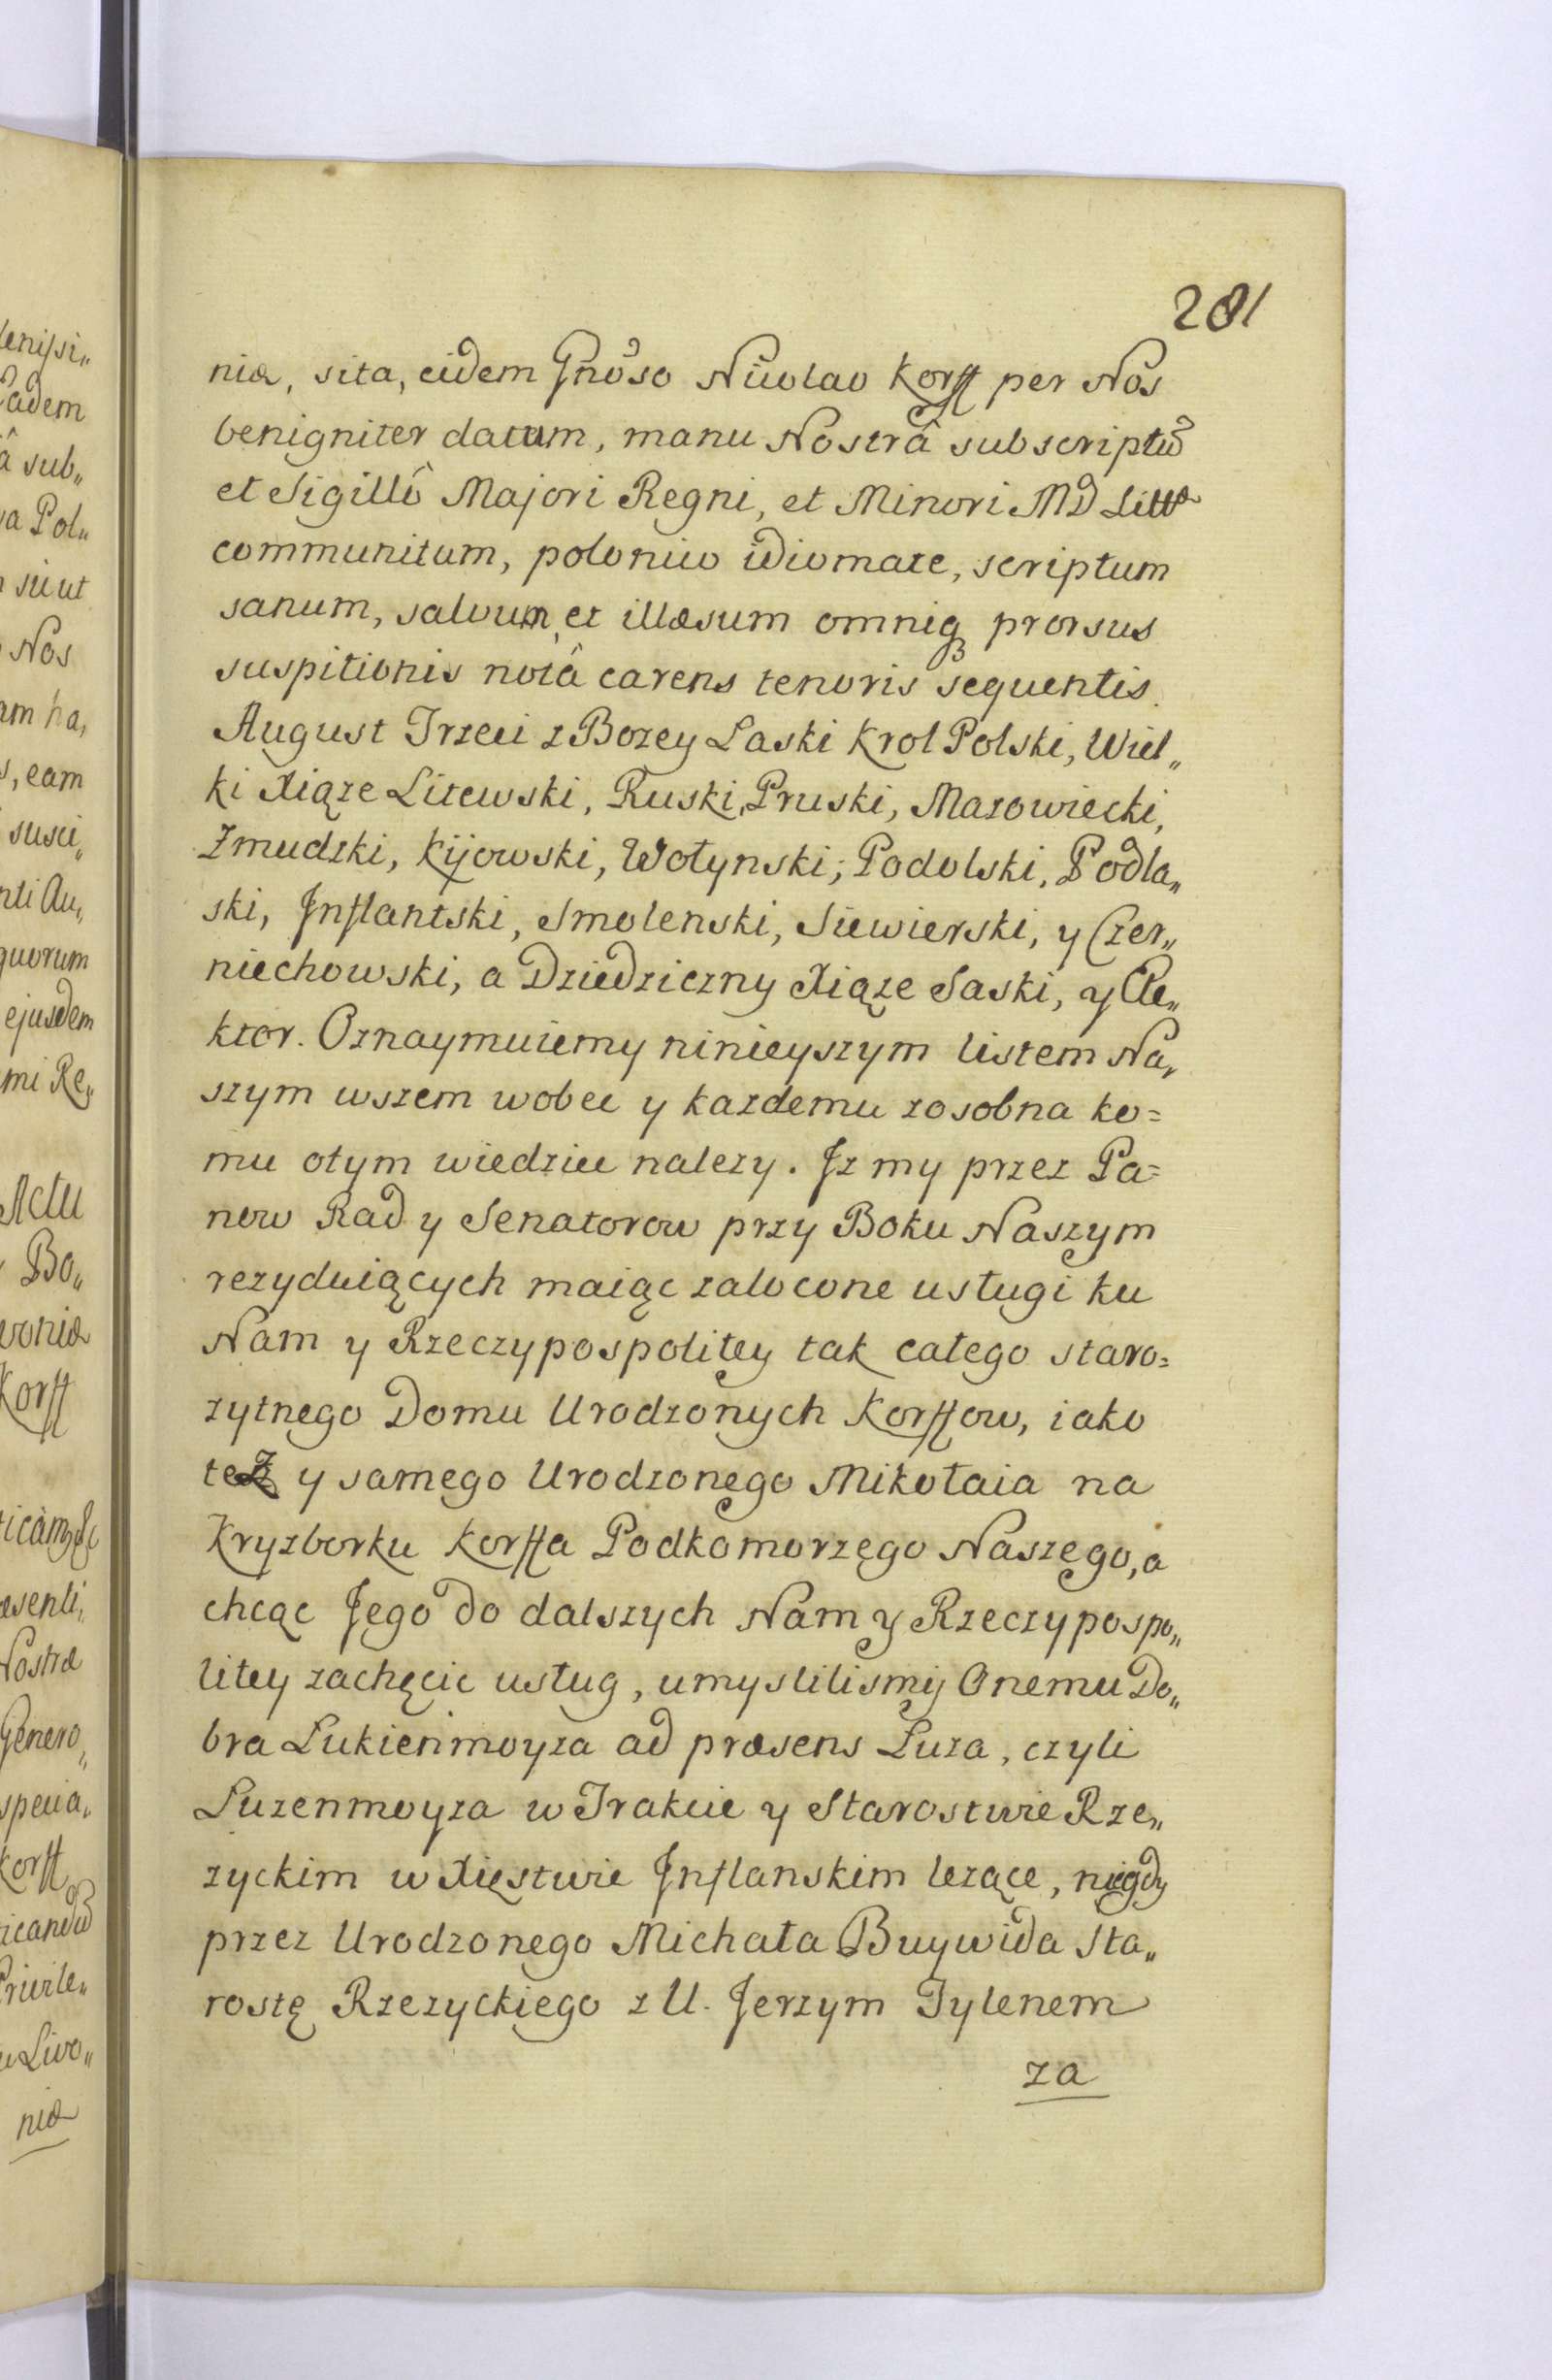 281
niæ, sita, eidem Gnõso Nicolao Korff per Nos
benigniter datum, manu Nostrâ subscriptũ
et Sigillô Majori Regni, et Minori MD Littæ
communitum, polonico idiomate, scriptum
sanum, salvum, et illæsum omniq3 prorsus
suspitionis notâ carens tenoris sequentis.
August Trzeci z Bozey Laski Krol Polski, Wiel„
ki Xiąze Litewski, Ruski, Pruski, Mazowiecki,
Zmudzki, Kijowski, Wołynski, Podolski, Podla„
ski, Inflantski, Smolenski, Siewierski, y Czer„
niechowski, a Dziedziczny Xiąze Saski, y Ele„
ktor. Oznaymuiemy ninieyszym listem Na„
szym wszem wobec y kazdemu zosobna ko=
mu otym wiedziec nalezy. Iz my przez Pa=
now Rad y Senatorow przy Boku Naszym
rezyduiących maiąc zalocone usługi ku
Nam y Rzeczypospolitey tak całego staro=
zytnego Domu Urodzonych Korffow, iako
tez y samego Urodzonego Mikołaia na
Kryzborku Korffa Podkomorzęgo Naszęgo, a
chcąc Jego do dalszych Nam y Rzeczypospo„
litey zachęcic usług, umyslilismy Onemu Do„
bra Lukienmoyza ad præsens Luza, czyli
Luzenmoyza w Trakcie y Starostwie Rze„
zyckim w Xięstwie Inflanskim lezące, niegdy
przez Urodzonego Michała Buywida Sta„
rostę Rzezyckiego z U. Jerzym Tylenem
za
lenissi„
Eadem
â sub„
va Pol„
sicut
Nos
am ha„
s, eam
susci„
nti Au„
quorum
ejusdem
mi Re„
Actu
Bo„
voniæ
Korff
æsenti„
Nostræ
Genero„
specia„
Korff
icandũ
Privile„
Livo„
niæ